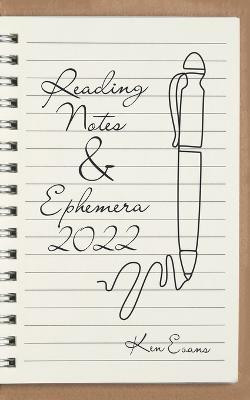 Reading
Notes
&
Ephemera
2022
Ken Evans